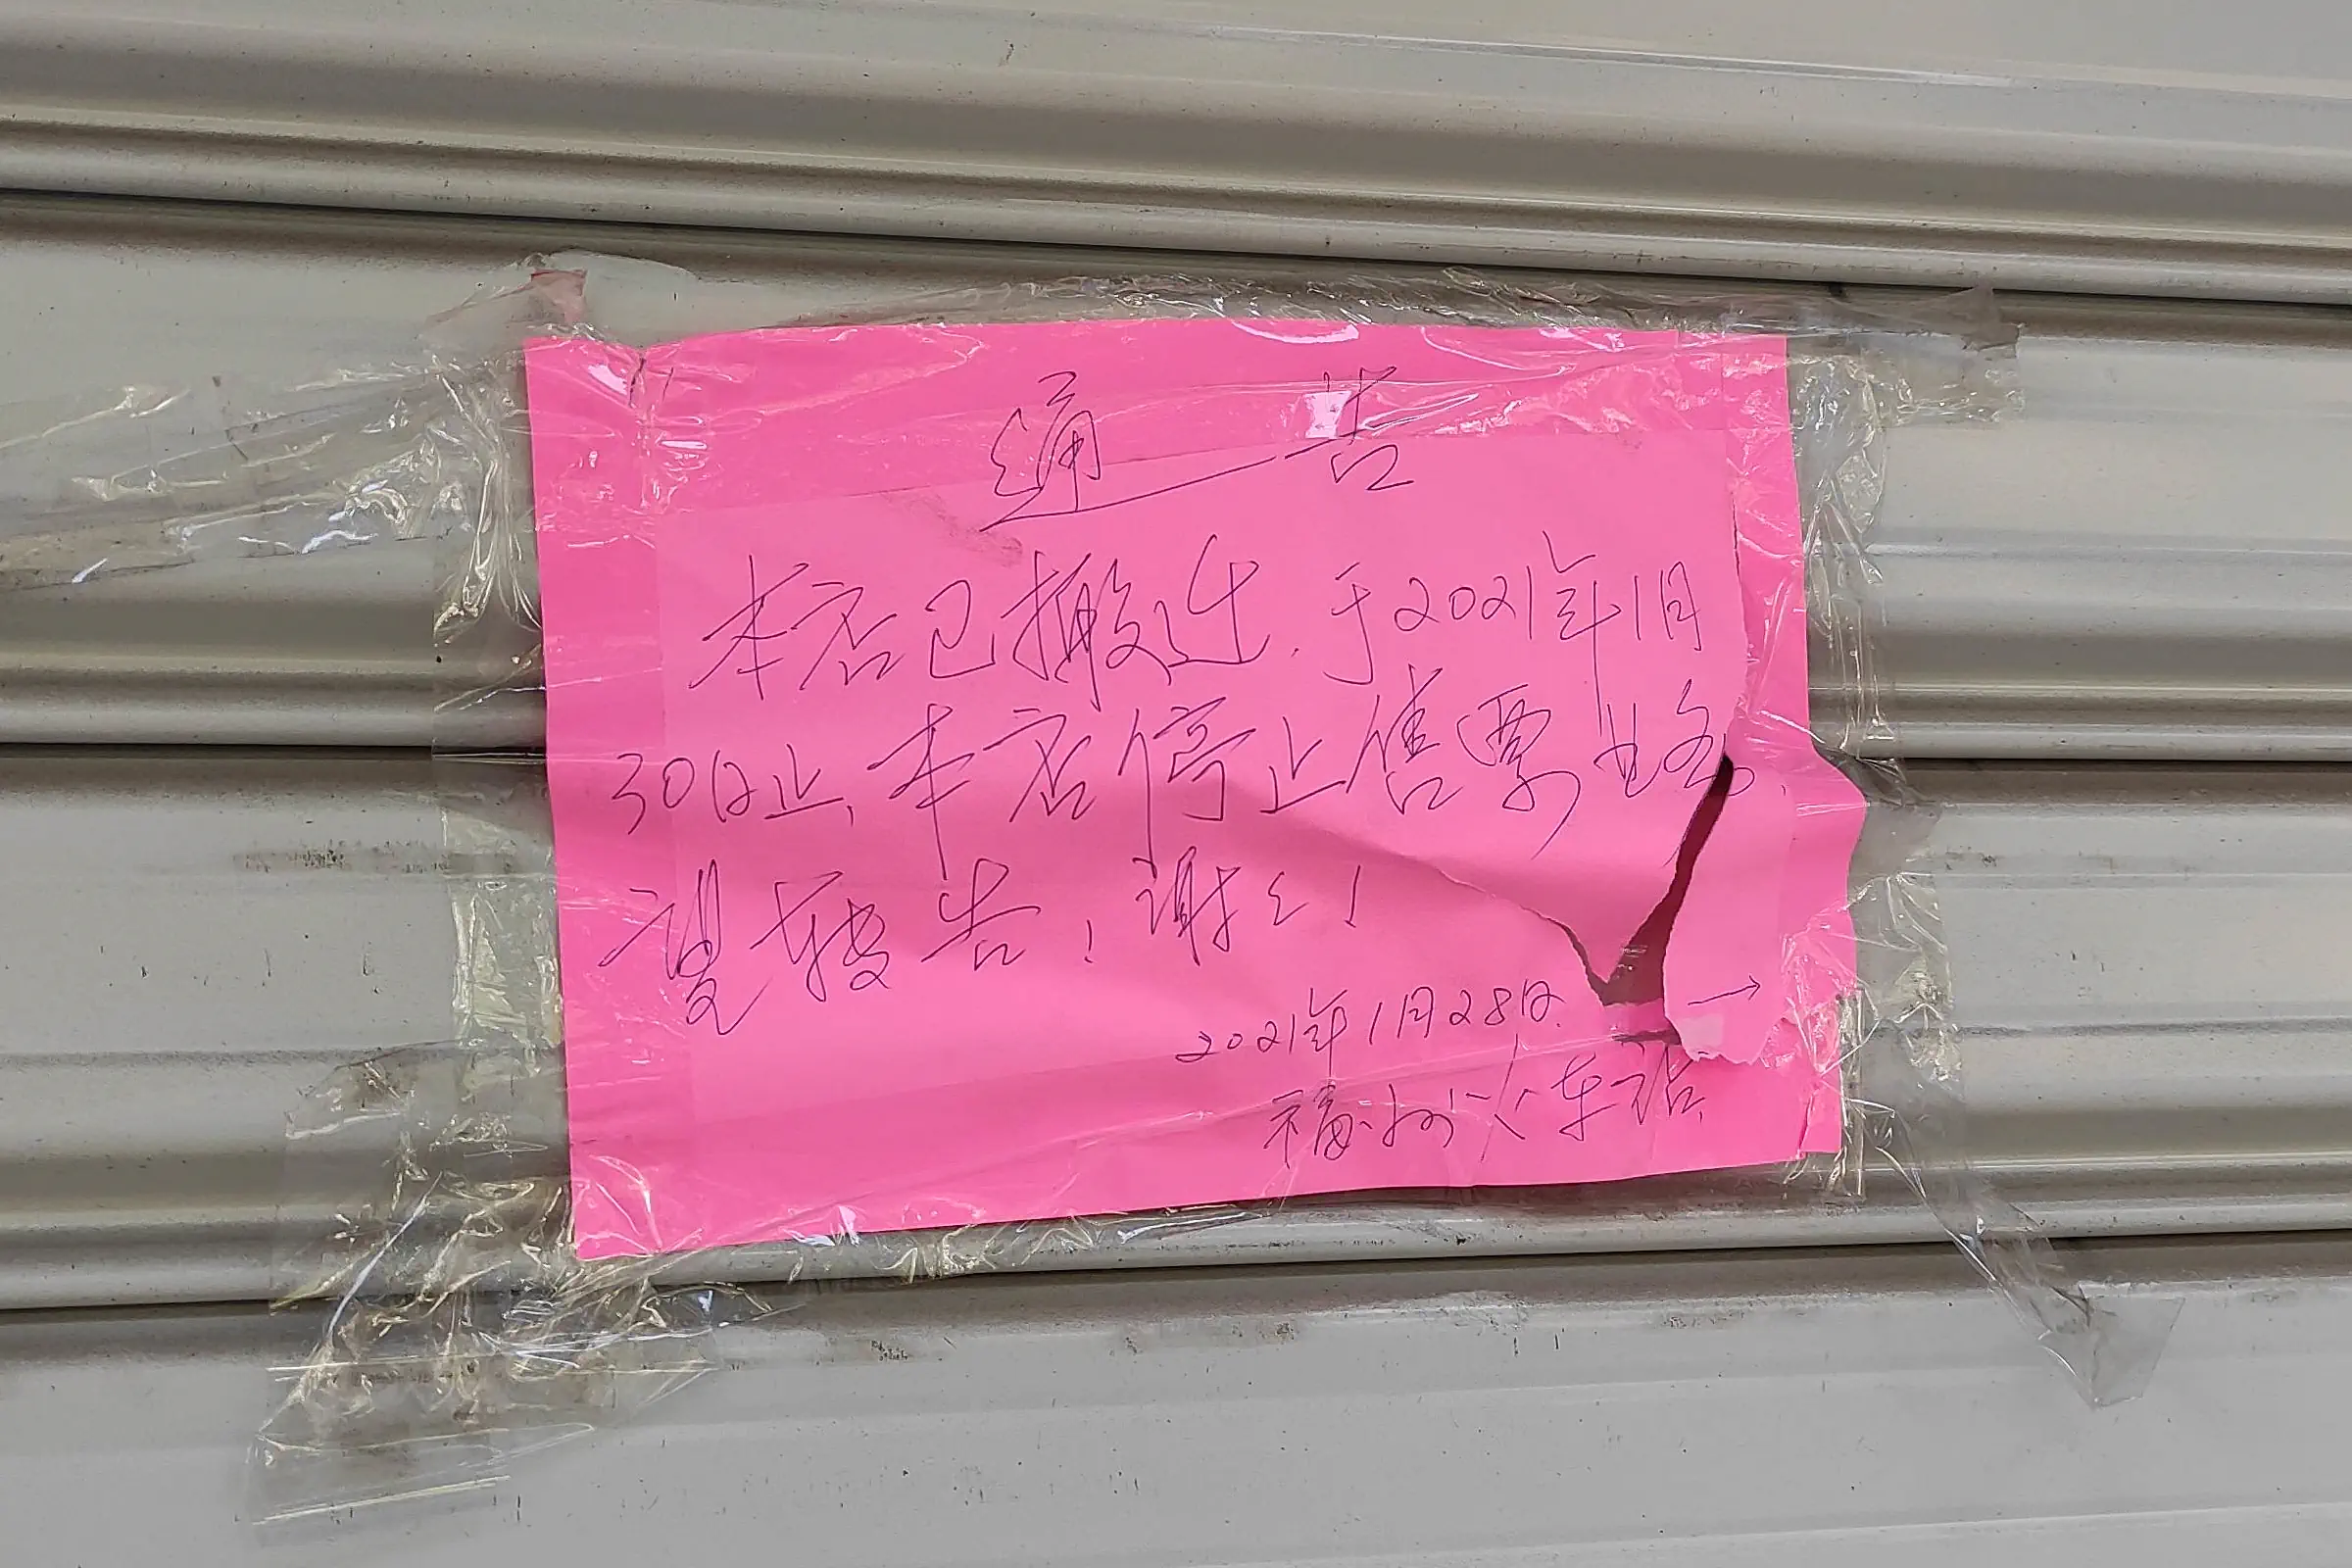 通告
本店已搬迁.于2021年1月
30日止、本店停止售票业务.
望转告!谢々!
2021年1月28日.
→
福州火车站